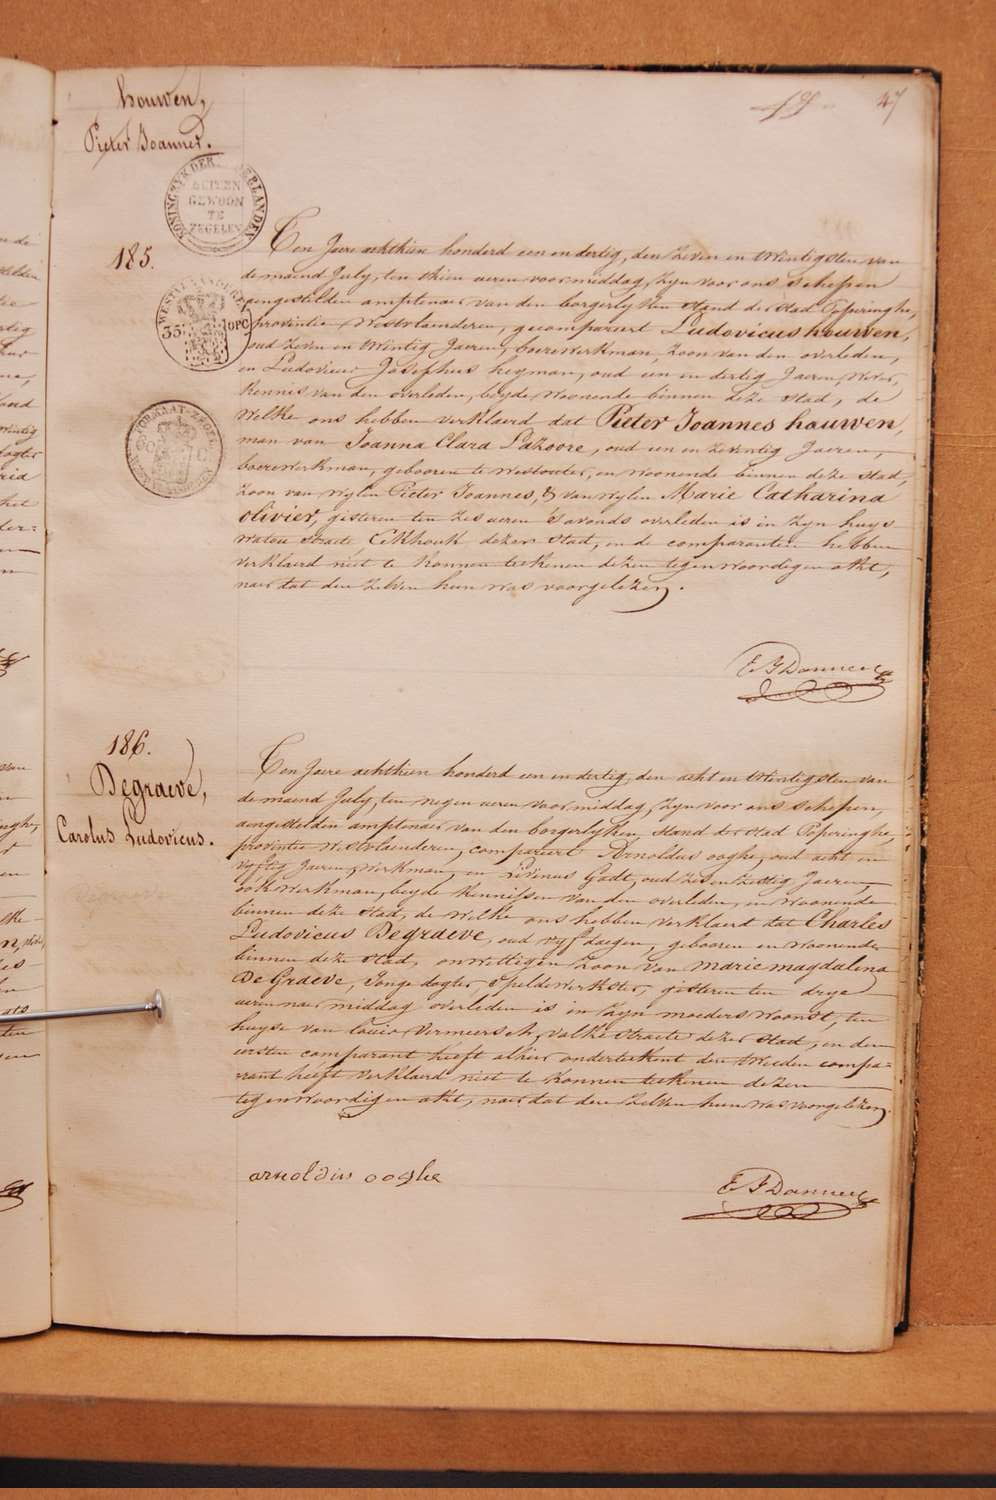 47
houwen,
Pieter Joannes.
KONINGRYK DER NEDERLANDEN
BUITEN
GEWOON
TE
ZEGELEN
185.
WESTVLAANDEREN
35 OPC
Ten Jaere achthien honderd een en dertig, den zeven en twintigsten van
de maend July, ten thien ueren voormiddag, zyn voor ons schepen
aengestelden amptenaer van den borgerlyken stand der stad Poperinghe,
provintie Westvlaenderen, gecompareert Ludovicus houwen,
oud zeven en twintig Jaeren, boerewerkman, zoon van den overleden,
en Ludovicus Josephus heyman, oud een en dertig Jaeren, wever,
kennis van den overleden, beyde woonende binnen deze stad, de
welke ons hebben verklaerd dat Pieter Joannes houwen,
man van Joanna Clara Lazoore, oud een en zeventig Jaeren,
boerewerkman, gebooren te westouter, en woonende binnen deze stad,
zoon van wylen Pieter Joannes, & van wylen Marie Catharina
olivier, gisteren ten zes ueren 's avonds overleden is in zyn huys
watou straete Eekhouk dezer stad, en de comparanten hebben
verklaerd niet te konnen teekenen dezen tegenwoordigen akt,
naer dat den zelven hun was voorgelezen.
186.
Degraeve,
Carolus Ludovicus.
Ten Jaere achthien honderd een en dertig, den acht en twintigsten van
de maend July, ten negen ueren voormiddag, zyn voor ons schepen,
aengestelden amptenaer van den borgerlyken stand der stad Poperinghe,
provintie Westvlaenderen, compareert Arnoldus ooghe, oud acht en
vyftig Jaeren, werkman, en Livinus Gadt, oud zes en zestig Jaeren,
ook werkman, beyde kennissen van den overleden, en woonende
binnen deze stad, de welke ons hebben verklaerd dat Charles
Ludovicus Degraeve, oud vyf daegen, gebooren en woonende
binnen deze stad, onwettigen zoon van marie magdalena
De Graeve, Jonge dogter, speldewerkster, gisteren ten drye
ueren naer middag overleden is in zyn moeders woonst, ten
huyse van louis Vermeersch, valke straete dezer stad, en den
eersten comparant heeft alhier onderteekent den tweeden compa=
rant heeft verklaerd niet te konnen teekenen dezen
tegenwoordigen akt, naer dat den zelven hun was voorgelezen.
arnoldus ooghe